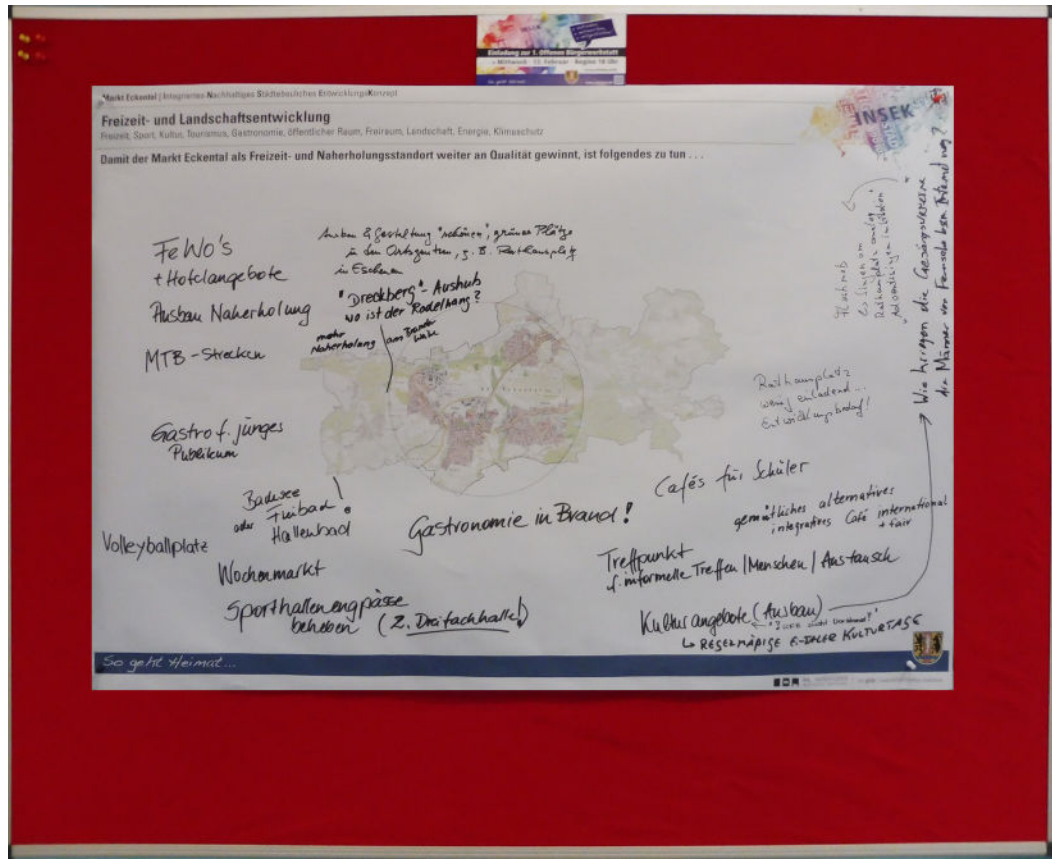 INSEK
Einladung zur 1. Offenen Bürgerwerkstatt
Mittwoch · 13. Februar · Beginn 18 Uhr
Markt Eckental | Integriertes Nachhaltiges Städtebauliches EntwicklungsKonzept
Freizeit- und Landschaftsentwicklung
Freizeit, Sport, Kultur, Tourismus, Gastronomie, öffentlicher Raum, Freiraum, Landschaft, Energie, Klimaschutz
Damit der Markt Eckental als Freizeit- und Naherholungsstandort weiter an Qualität gewinnt, ist folgendes zu tun . . .
INSEK
FeWo's
+ Hotelangebote
Ausbau Naherholung
MTB-Strecken
Ausbau & Gestaltung "schönen", grünen Plätze
in den Ortszentren, z. B. Rathausplatz
in Eschenau
"Dreckberg"- Aushub
wo ist der Rodelhang?
mehr
Naherholung am
Gastro f. junges
Publikum
Badesee
oder Freibad
Hallenbad !
Volleyballplatz
Wochenmarkt
Sporthallenengpässe
beheben (2. Dreifachhalle!)
Gastronomie in Brand!
Cafés für Schüler
gemütliches alternatives
integratives Café international
+ fair
Treffpunkt
f. informelle Treffen / Menschen / Austausch
Kulturangebote (Ausbau)
↳ REGELMÄßIGE E-TALER KULTURTAGE
Rathausplatz
wenig einladend...
Entwicklungsbedarf!
Flashmob
Es Singen am
Rathausplatz analog
"Adventsingen
Wie kriegen die Gesangvereine
die Männer von Fernseher bzw Internet weg?
So geht Heimat...